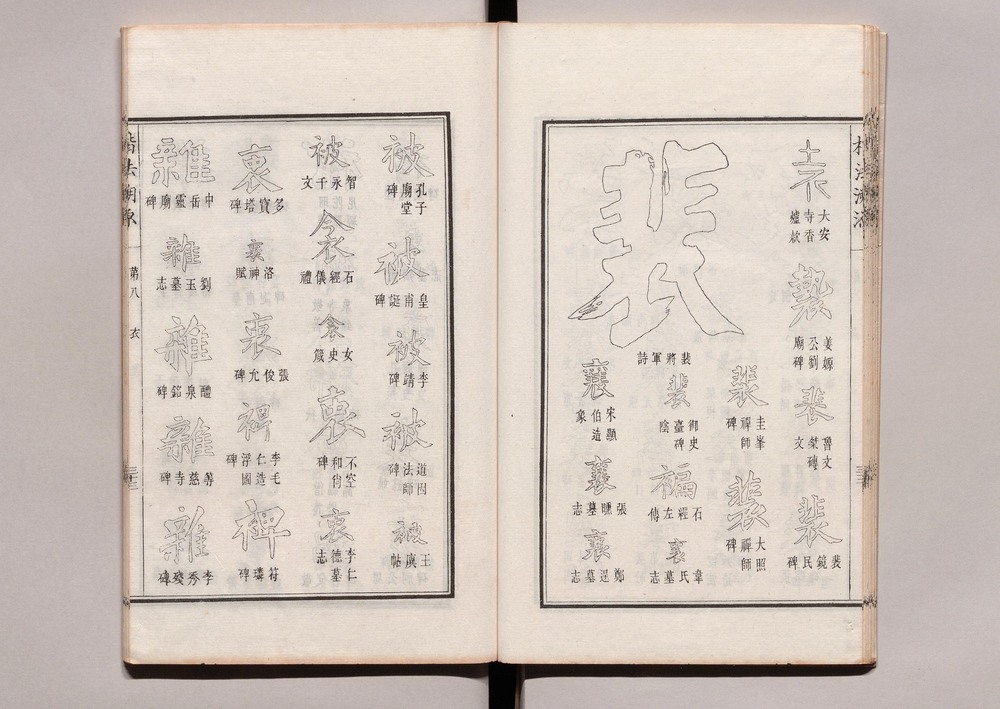 大安
寺香
爐欵
姜嫄
公劉
廟碑
裴
魯文
桀磚
文
裴
裴鏡民碑
裴
圭峯
禪師
碑
裴
大照
禪師
碑
裴
裴將軍詩
裴
御史
臺碑
陰
褊
石經左傳
襄
韋氏墓志
襄
宋顯
伯造
象
襄
張曛墓志
襄
鄭逞墓志
被
孔子
廟堂
碑
被
皇甫誕碑
被
李靖碑
被
道因
法師
碑
被
王廙帖
被
智永千文
衾
石經儀禮
衾
女史箴
衷
不空
和尚
碑
衷
李仁
德墓
志
衷
多寶塔碑
衷
洛神賦
衷
張俊允碑
裨
李毛
仁造
浮圖
碑
裨
符璘碑
雜
中岳靈廟碑
雜
劉玉墓志
雜
醴泉銘碑
雜
等慈寺碑
雜
李秀殘碑
第八 衣